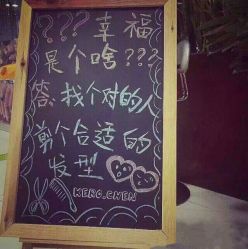 ???幸福
是个啥???
答:找个对的人
剪个合适的
发型
KERO.CHEN